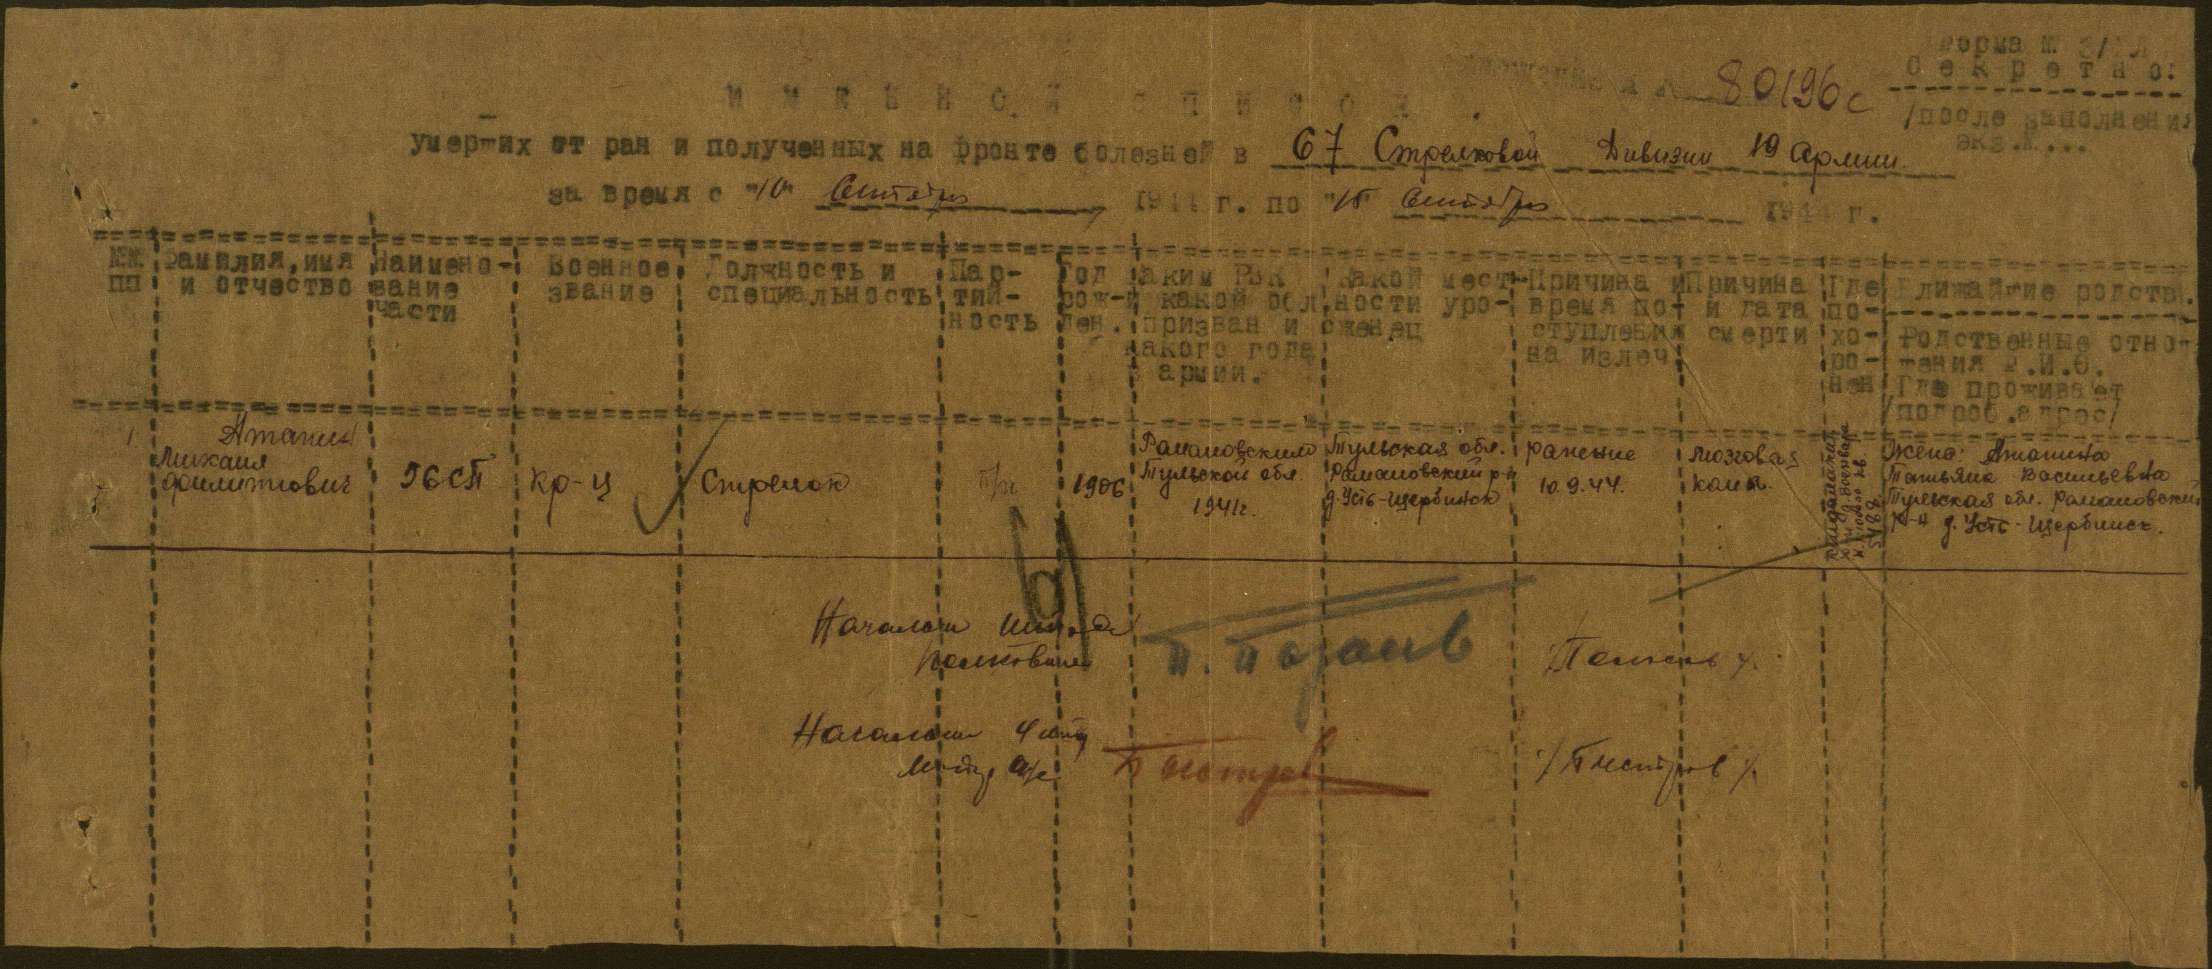 Форма №
Секретно!
/после заполнения
экз.№...
80196с
ИМЕННОЙ СПИСОК
умерших от ран и полученных на фронте болезней в 67 Стрелковой Дивизии 19 Армии.
за время с "10" Сентября 1944 г. по "15" Сентября 1944 г.
№№ пп
Фамилия, имя и отчество
Наимено-
вание
части
Военное
звание
Должность и
специальность
Пар-
тий-
ность
Год
рож-
ден.
Каким РВК
и какой обл.
призван и
какого года
в армии.
Какой мест-
ности уро-
женец
Причина и
время по-
ступления
на излеч.
Причина
и дата
смерти
Где
по-
хо-
ро-
нен
Ближайшие родств.
Родственные отно-
шения Ф.И.О.
Где проживает
/подроб.адрес/
1
Атанин
Михаил
Филиппович
56 СП
Кр-ц
Стрелок
б/п
1906
Рамановским
Тульской обл.
1941г.
Тульская обл.
Рамановский р-н
д. Усть-Щербинск
ранение
10.9.44.
мозговая
Жена: Атанина
Татьяна Васильевна
Тульская обл. Рамановский
р-н д. Усть-Щербинск.
Начальник Штаба
Полковник
Начальник 4 отд